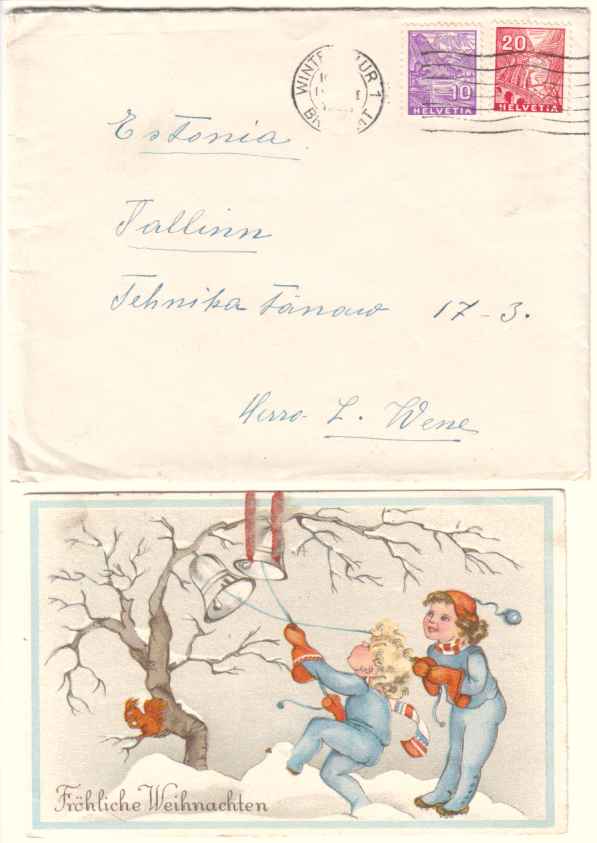 WINTERTHUR 1
20
10
HELVETIA
HELVETIA
Estonia
Tallinn
Tehnika Tänaw 17-3.
Herrn L. Wene
Fröhliche Weihnachten